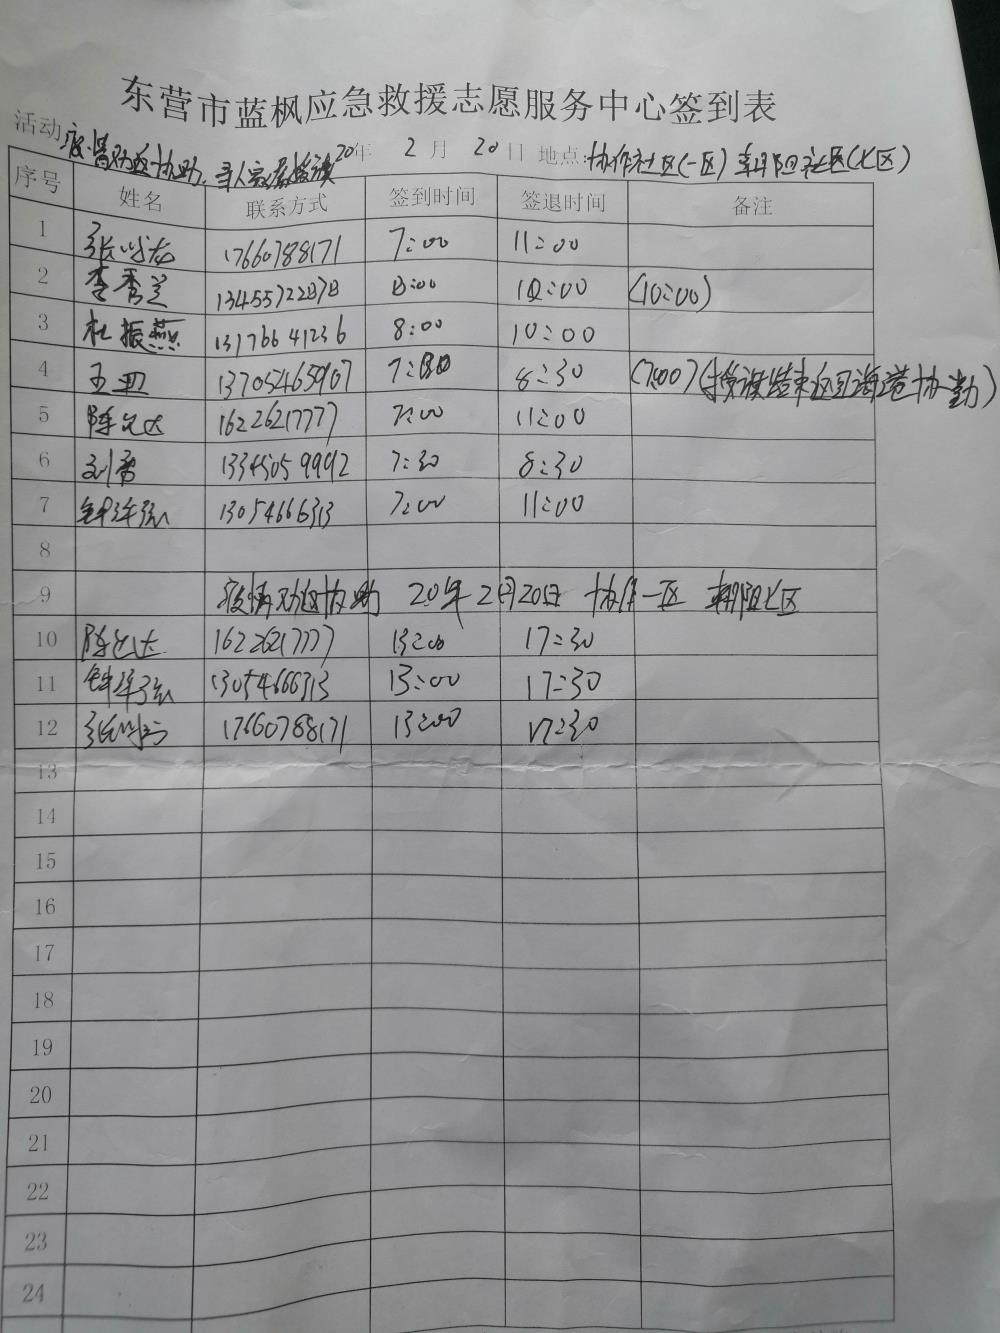 东营市蓝枫应急救援志愿服务中心签到表
活动 协助 20年 2月 20日 地点:协作社区(一区) 朝阳社区(七区)
序号 姓名 联系方式 签到时间 签退时间 备注
1 张 17660788171 7:00 11:00
2 李秀兰 13455722878 8:00 10:00 (10:00)
3 杜振燕 13176641236 8:00 10:00
4 王 13705465907 8:30 (7:00) 结束返回海港协勤)
5 陈 16226217777 7:00 11:00
6 刘 13345059992 7:30 8:30
7 钟 13054666313 7:00 11:00
8
9 疫情 协助 20年2月20日 协作一区 朝阳七区
10 陈 16226217777 13:00 17:30
11 钟 13054666313 13:00 17:30
12 张 17660788171 13:00 17:30
13
14
15
16
17
18
19
20
21
22
23
24